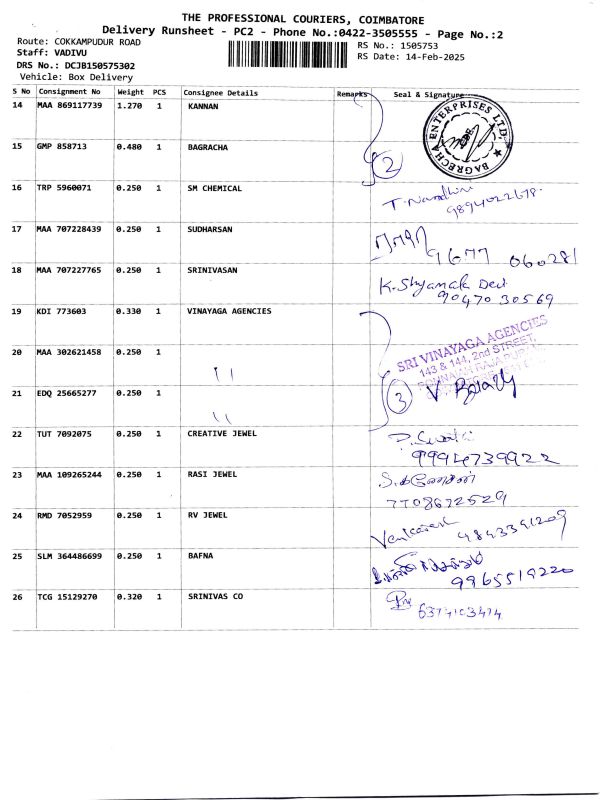 THE PROFESSIONAL COURIERS, COIMBATORE
Delivery Runsheet - PC2 - Phone No.:0422-3505555 - Page No.:2
Route: COKKAMPUDUR ROAD
Staff: VADIVU
DRS No.: DCJB150575302
Vehicle: Box Delivery
RS No.: 1505753
RS Date: 14-Feb-2025
S No Consignment No Weight PCS Consignee Details Remarks Seal & Signature
14 MAA 869117739 1.270 1 KANNAN
BAGRECHA ENTERPRISES LTD.
15 GMP 858713 0.480 1 BAGRACHA
2
16 TRP 5960071 0.250 1 SM CHEMICAL
T. Nandhini
9894022678.
17 MAA 707228439 0.250 1 SUDHARSAN
9677 060281
18 MAA 707227765 0.250 1 SRINIVASAN
K. Shyamala Devi
90470 30569
19 KDI 773603 0.330 1 VINAYAGA AGENCIES
SRI VINAYAGA AGENCIES
143 & 144, 2nd STREET,
20 MAA 302621458 0.250 1 "
21 EDQ 25665277 0.250 1 "
3
22 TUT 7092075 0.250 1 CREATIVE JEWEL
9994739922
23 MAA 109265244 0.250 1 RASI JEWEL
7708672529
24 RMD 7052959 0.250 1 RV JEWEL
25 SLM 364486699 0.250 1 BAFNA
9965519220
26 TCG 15129270 0.320 1 SRINIVAS CO
6374103474